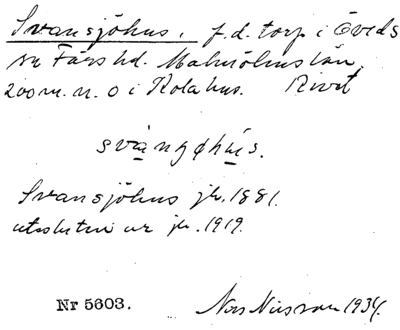 Svansjöhus, f.d. torp i Öveds
sn Färs hd. Malmöhus län,
200 m. n. o i Kolahus. Rivet
svaŋøhus.
Svansjöhus jk. 1881.
utesluten ur jk. 1919.
Nr 5603. Nils Nilsson 1934.